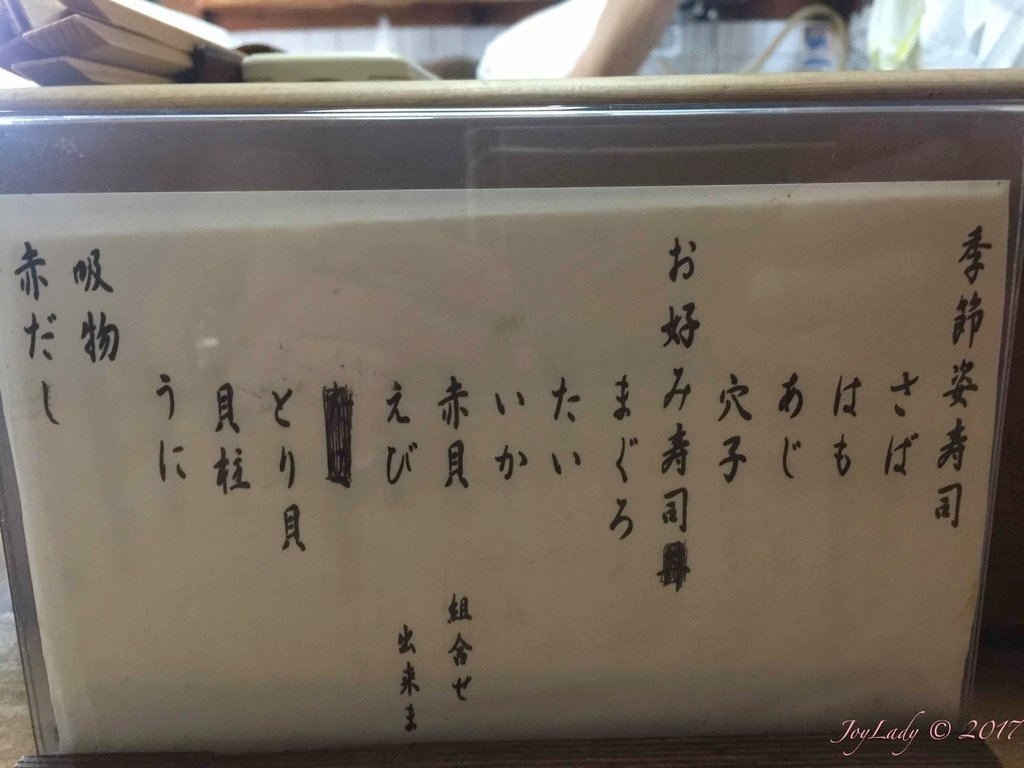 季節姿寿司
さば
はも
あじ
穴子
お好み寿司
まぐろ
たい
いか
赤貝
えび
とり貝
貝柱
うに
組合せ
出来ま
吸物
赤だし
JoyLady © 2017